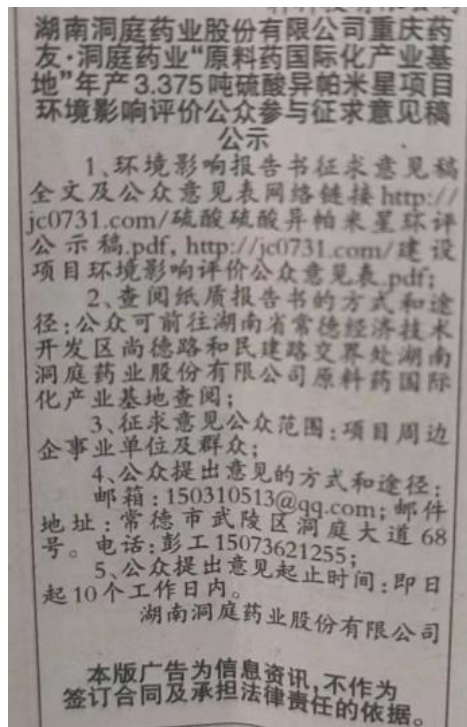 湖南洞庭药业股份有限公司重庆药
友·洞庭药业“原料药国际化产业基
地”年产3.375吨硫酸异帕米星项目
环境影响评价公众参与征求意见稿
公示
1、环境影响报告书征求意见稿
全文及公众意见表网络链接http://
jc0731.com/硫酸硫酸异帕米星环评
公示稿.pdf, http://jc0731.com/建设
项目环境影响评价公众意见表.pdf;
2、查阅纸质报告书的方式和途
径:公众可前往湖南省常德经济技术
开发区尚德路和民建路交界处湖南
洞庭药业股份有限公司原料药国际
化产业基地查阅;
3、征求意见公众范围:项目周边
企事业单位及群众;
4、公众提出意见的方式和途径:
邮箱:150310513@qq.com;邮件
地址:常德市武陵区洞庭大道68
号。电话:彭工15073621255;
5、公众提出意见起止时间:即日
起10个工作日内。
湖南洞庭药业股份有限公司
本版广告为信息资讯,不作为
签订合同及承担法律责任的依据。